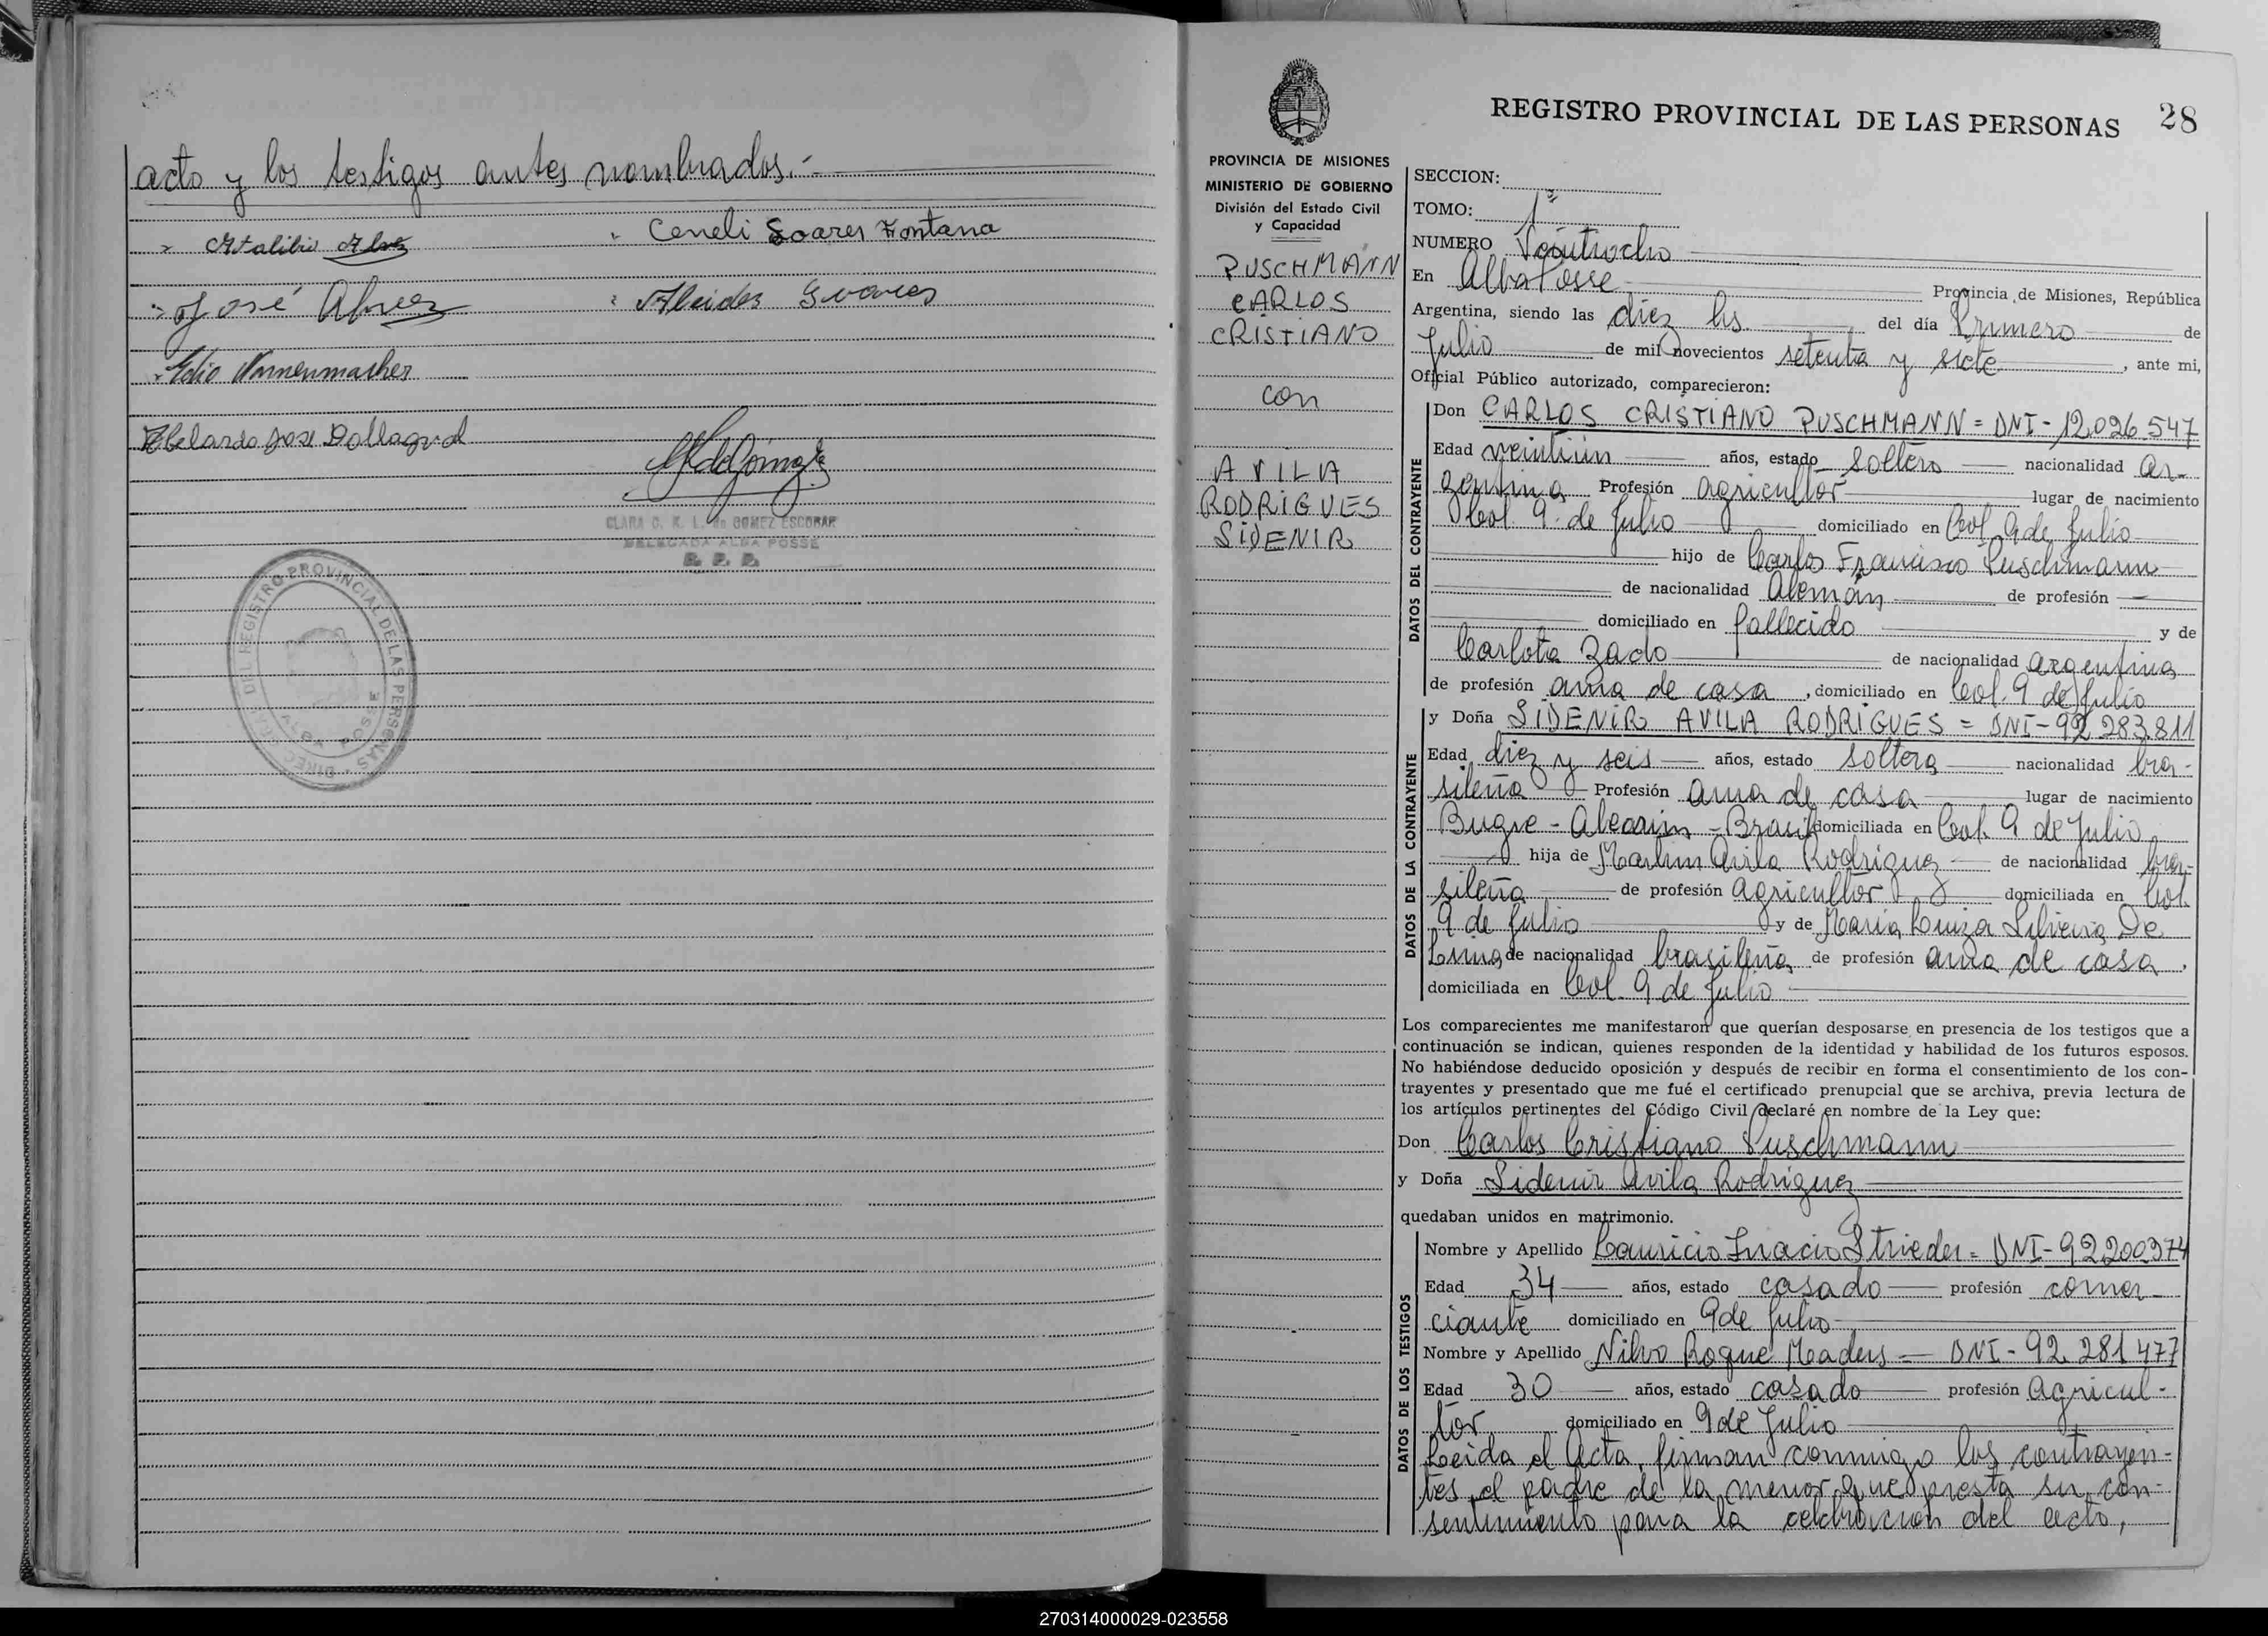 acto y los testigos antes nombrados.-
Ceneli Soares Fontana
José Alvez
Alcides Soares
Abelardo José Dallagnol
CLARA C. K. L. de GOMEZ ESCOBAR
DELEGADA ALBA POSSE
R. P. P.
REGISTRO PROVINCIAL DE LAS PERSONAS
ALBA POSSE
REGISTRO PROVINCIAL DE LAS PERSONAS 28
PROVINCIA DE MISIONES
MINISTERIO DE GOBIERNO
División del Estado Civil
y Capacidad
PUSCHMANN
CARLOS
CRISTIANO
con
AVILA
RODRIGUES
SIDENIR
SECCION:
TOMO: 1º
NUMERO Veintiocho
En Alba Posse Provincia de Misiones, República
Argentina, siendo las diez hs. del día Primero de
Julio de mil novecientos setenta y siete, ante mi,
Oficial Público autorizado, comparecieron:
DATOS DEL CONTRAYENTE
Don CARLOS CRISTIANO PUSCHMANN = DNI-12.026.547
Edad veintiún años, estado soltero nacionalidad ar-
gentina Profesión agricultor lugar de nacimiento
Col. 9 de Julio domiciliado en Col. 9 de Julio
hijo de Carlos Francisco Puschmann
de nacionalidad Alemán de profesión —
domiciliado en fallecido y de
Carlota Zado de nacionalidad argentina
de profesión ama de casa, domiciliado en Col. 9 de Julio
DATOS DE LA CONTRAYENTE
y Doña SIDENIR AVILA RODRIGUES = DNI-92.283.811
Edad diez y seis años, estado soltera nacionalidad bra-
sileña Profesión ama de casa lugar de nacimiento
Bugre - Alecrim - Brasil domiciliada en Col. 9 de Julio
hija de Martim Avila Rodriguez de nacionalidad bra-
sileña de profesión agricultor domiciliada en Col.
9 de Julio y de María Luiza Silveira De
Lima de nacionalidad brasileña de profesión ama de casa,
domiciliada en Col. 9 de Julio
Los comparecientes me manifestaron que querían desposarse en presencia de los testigos que a
continuación se indican, quienes responden de la identidad y habilidad de los futuros esposos.
No habiéndose deducido oposición y después de recibir en forma el consentimiento de los con-
trayentes y presentado que me fué el certificado prenupcial que se archiva, previa lectura de
los artículos pertinentes del Código Civil declaré en nombre de la Ley que:
Don Carlos Cristiano Puschmann
y Doña Sidenir Avila Rodriguez
quedaban unidos en matrimonio.
DATOS DE LOS TESTIGOS
Nombre y Apellido Lauricio Inacio Strieder = DNI-92.200.374
Edad 34 años, estado casado profesión comer-
ciante domiciliado en 9 de Julio
Nombre y Apellido Nilvo Roque Maders = DNI-92.281.477
Edad 30 años, estado casado profesión agricul-
tor domiciliado en 9 de Julio
Leida el Acta, firman conmigo los contrayen-
tes, el padre de la menor que presta su con-
sentimiento para la celebración del acto,
270314000029-023558